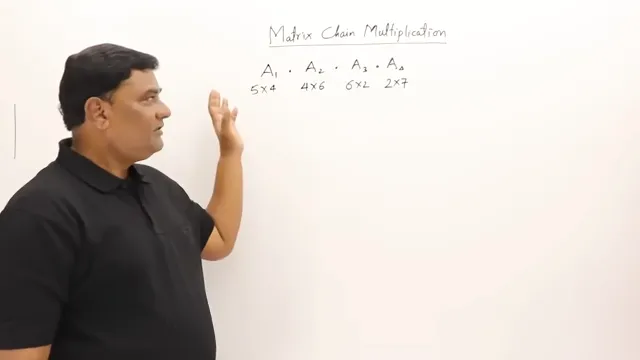 Matrix Chain Multiplication
A₁ . A₂ . A₃ . A₄
5×4 4×6 6×2 2×7